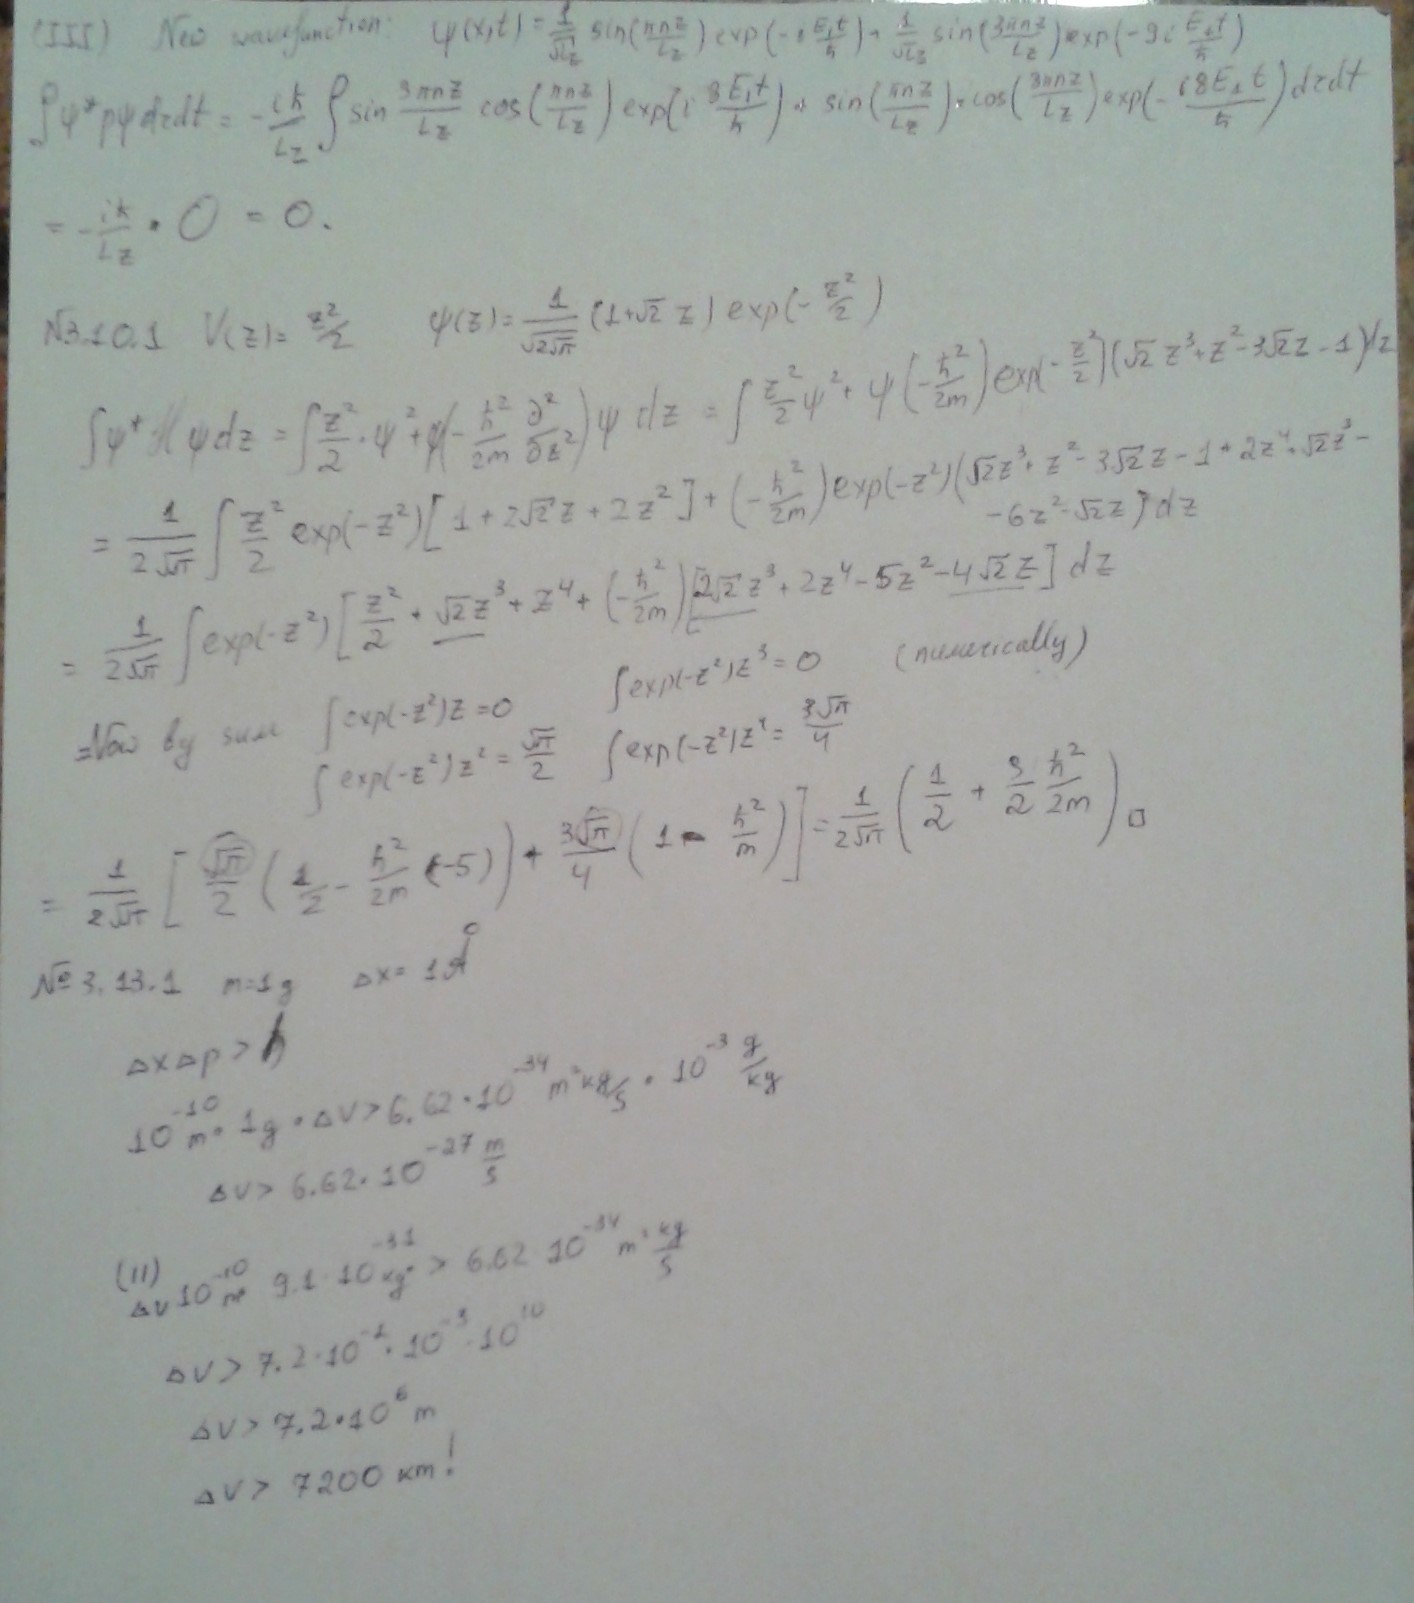 (III) New wavefunction: ψ(x,t) = 1/√Lz sin(πnz/Lz) exp(-i E₁t/ħ) + 1/√Lz sin(3πnz/Lz) exp(-9i E₁t/ħ)
∫ψ* pψ dzdt = -iħ/Lz ∫ sin 3πnz/Lz cos(πnz/Lz) exp(i 8E₁t/ħ) + sin(πnz/Lz)·cos(3πnz/Lz) exp(-i8E₁t/ħ) dzdt
= -iħ/Lz · 0 = 0.
№3.10.1 V(z)= z²/2 ψ(z)= 1/√(2√π) (1+√2 z) exp(-z²/2)
∫ψ* H ψ dz = ∫ z²/2 · ψ² + ψ(-ħ²/2m ∂²/∂z²)ψ dz = ∫ z²/2 ψ² + ψ(-ħ²/2m) exp(-z²/2)(√2 z³ + z² - 3√2 z - 1)dz
= 1/(2√π) ∫ z²/2 exp(-z²)[1 + 2√2 z + 2z²] + (-ħ²/2m) exp(-z²)(√2z³ + z² - 3√2z - 1 + 2z⁴ + √2z³ -
- 6z² - √2z] dz
= 1/(2√π) ∫exp(-z²) [z²/2 + √2z³ + z⁴ + (-ħ²/2m)[2√2 z³ + 2z⁴ - 5z² - 4√2 z] dz
=Now by sum ∫exp(-z²)z=0 ∫exp(-z²)z³=0 (numerically)
∫exp(-z²)z² = √π/2 ∫exp(-z²)z⁴ = 3√π/4
= 1/(2√π) [√π/2 (1/2 - ħ²/2m (-5)) + 3√π/4 (1 - ħ²/m)] = 1/(2√π) (1/2 + 9/2 ħ²/2m) □
№ 3.13.1 m=1g Δx= 1Å
ΔxΔp > h
10⁻¹⁰ m · 1g · ΔV > 6.62·10⁻³⁴ m²kg/s · 10⁻³ g/kg
ΔV > 6.62·10⁻²⁷ m/s
(II)
ΔV 10⁻¹⁰ m 9.1·10⁻³¹ kg > 6.62 10⁻³⁴ m² kg/s
ΔV > 7.2·10⁻¹·10⁻³·10¹⁰
ΔV > 7.2·10⁶ m
ΔV > 7200 km!